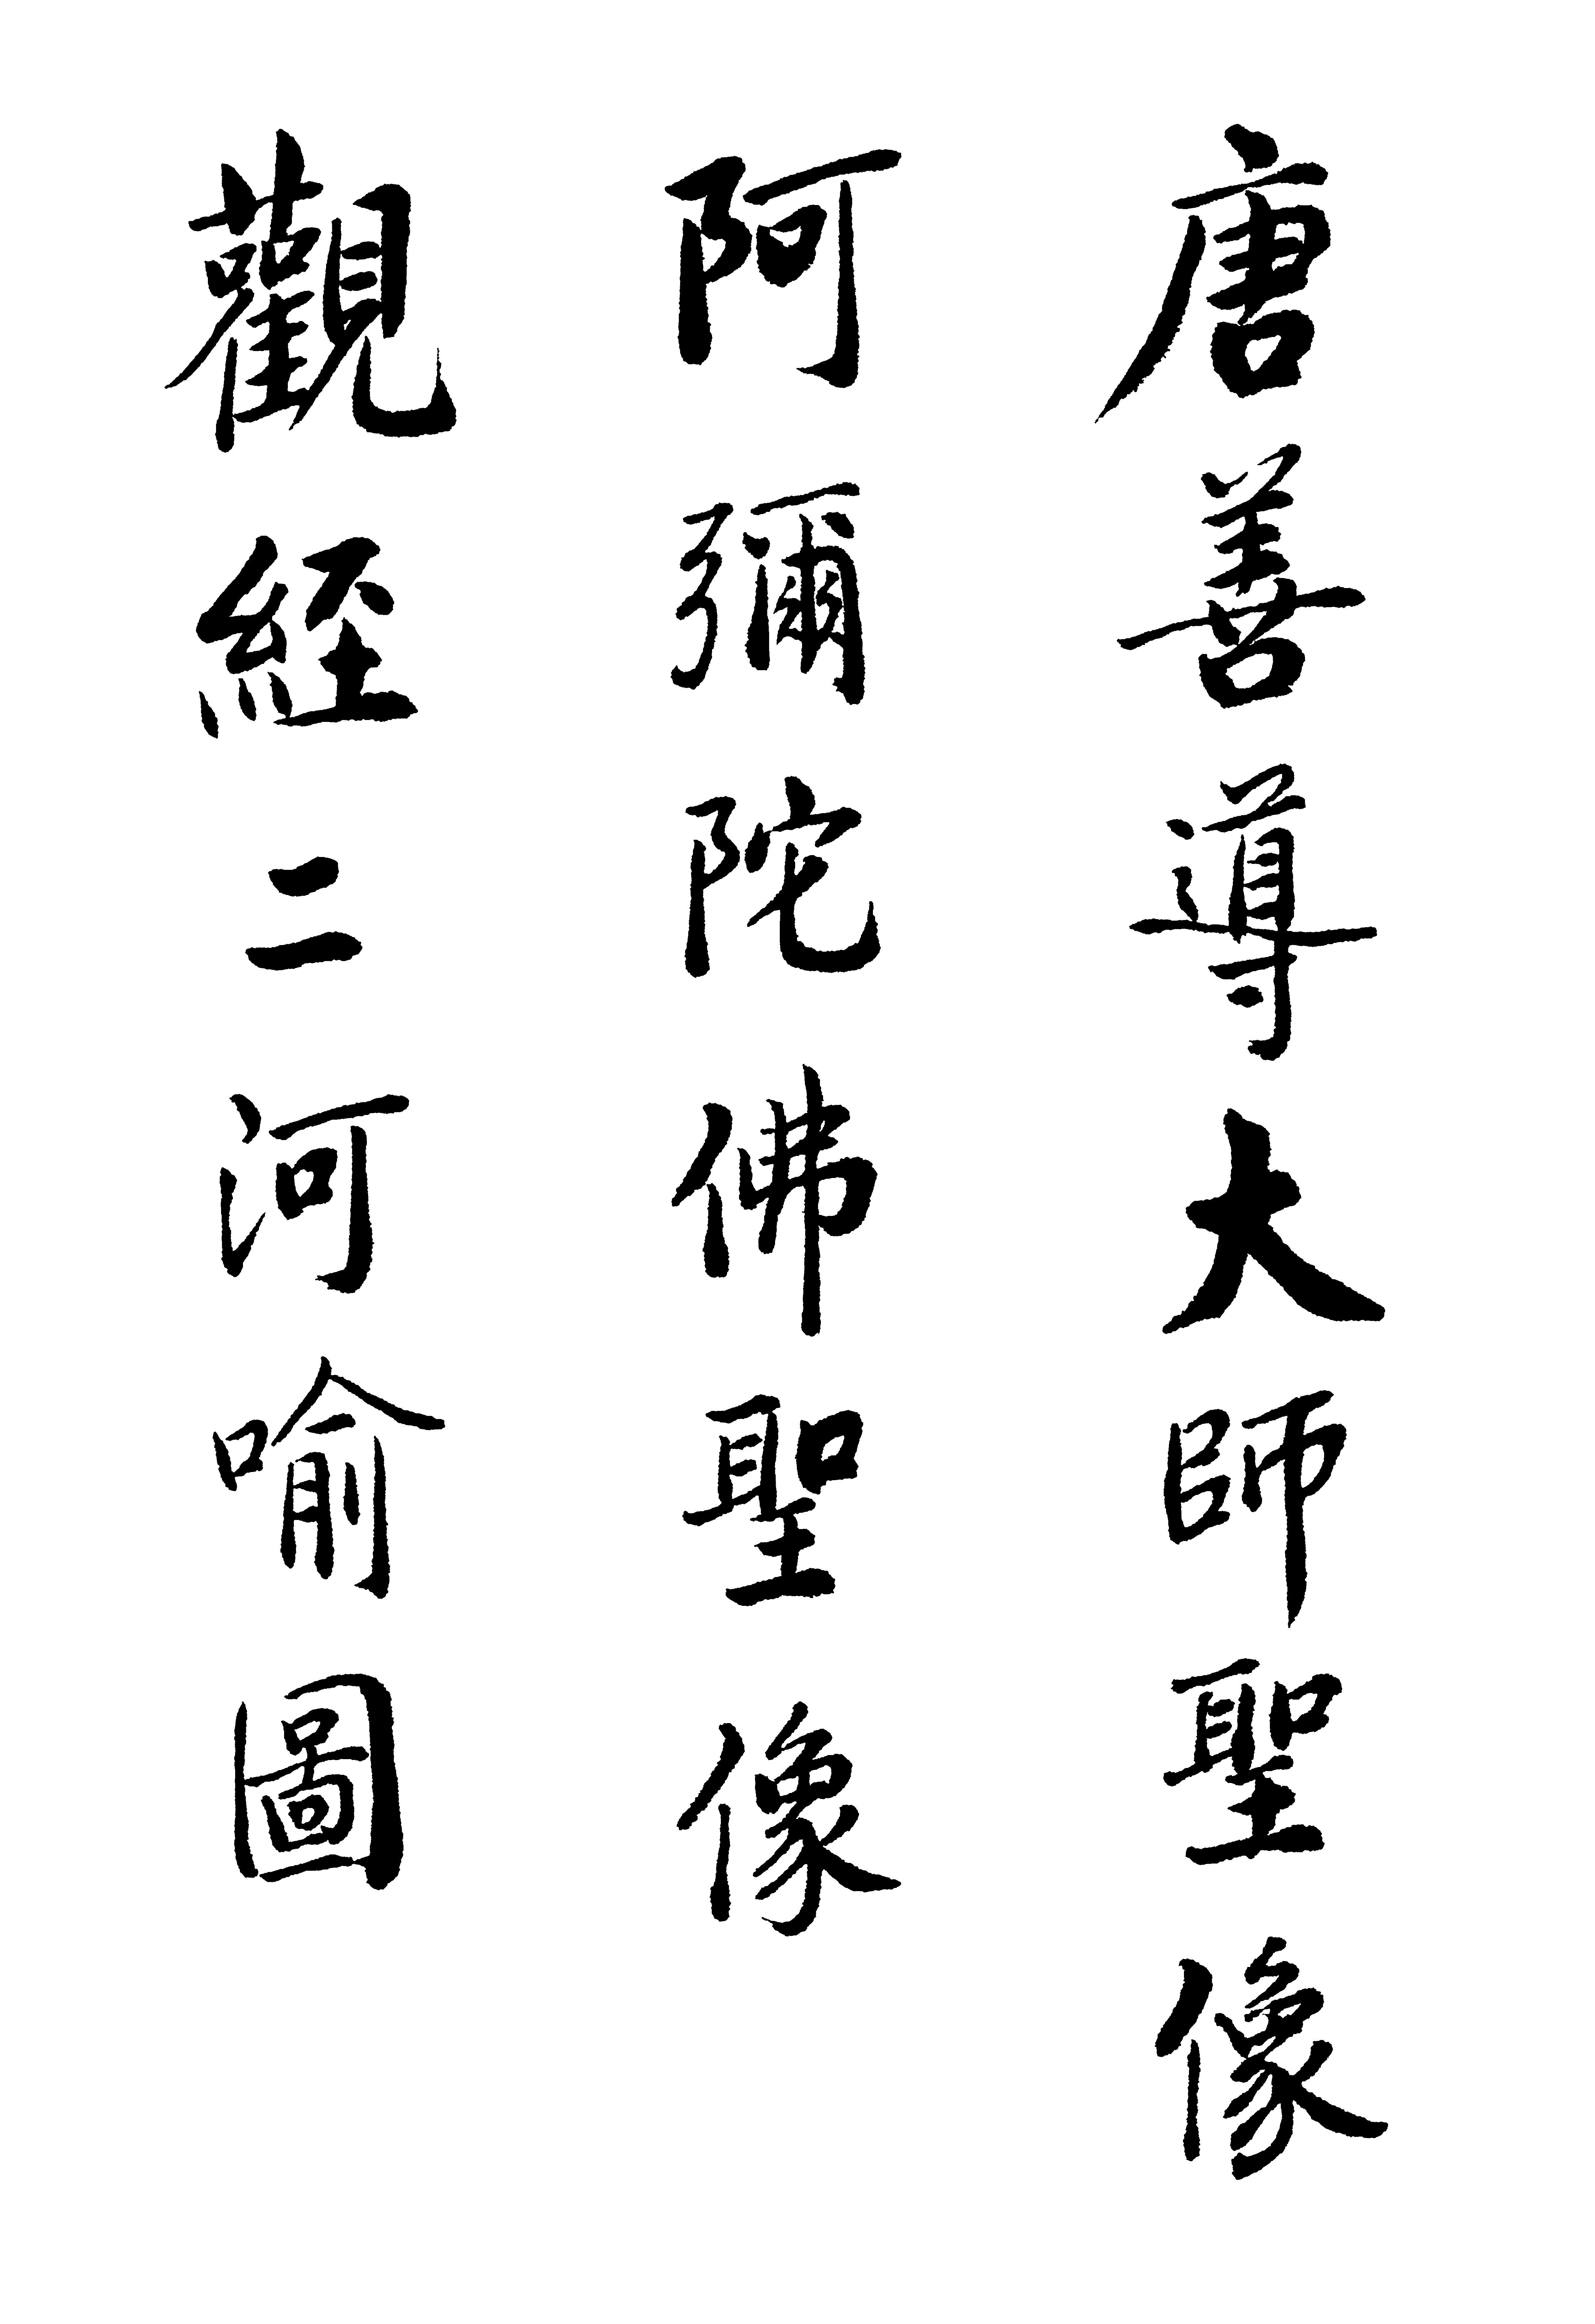 唐善導大師聖像
阿彌陀佛聖像
觀經二河喻圖